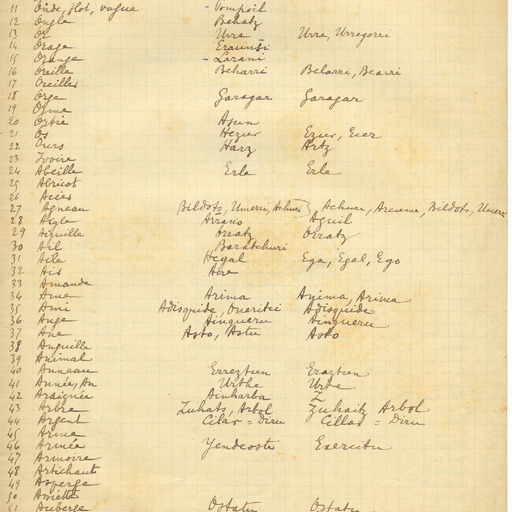 11 Onde, flot, vague - Pompoil
12 Ongle Behatz
13 Or Urre Urre, Urregorri
14 Orage Eraunsi
15 Orange - Larani
16 Oreille Beharri Belarri, Bearri
17 Oreiller
18 Orge Garagar Garagar
19 Orme
20 Ortie Asun
21 Os Hezur Ezur, Ecer
22 Ours Harz Artz
23 Ivoire
24 Abeille Erle Erle
25 Abricot
26 Acier
27 Agneau Bildots, Umerri, Achuri Achuri, Bildots,
28 Aigle Arrano Aguil
29 Aiguille Orratz Orratz
30 Ail Baratchuri
31 Aile Hegal Ega, Egal, Ego
32 Ais
33 Amande
34 Ame Arima Anima, Arima
35 Ami Adisquide, Adisquide
36 Ange Aingueru Aingueru
37 Ane Asto, Astu Asto
38 Anguille
39 Animal
40 Anneau Erreztun Eraztun
41 Année, An Urthe Urte
42 Araignée Ainharba Z
43 Arbre Zuhatz, Arbol Zuhaitz Arbol
44 Argent Cilar = Diru Cillar = Diru
45 Arme
46 Armée Yendeoste Exercitu
47 Armoire
48 Artichaut
49 Asperge
50 Assiette
51 Auberge Ostatu Ostatu